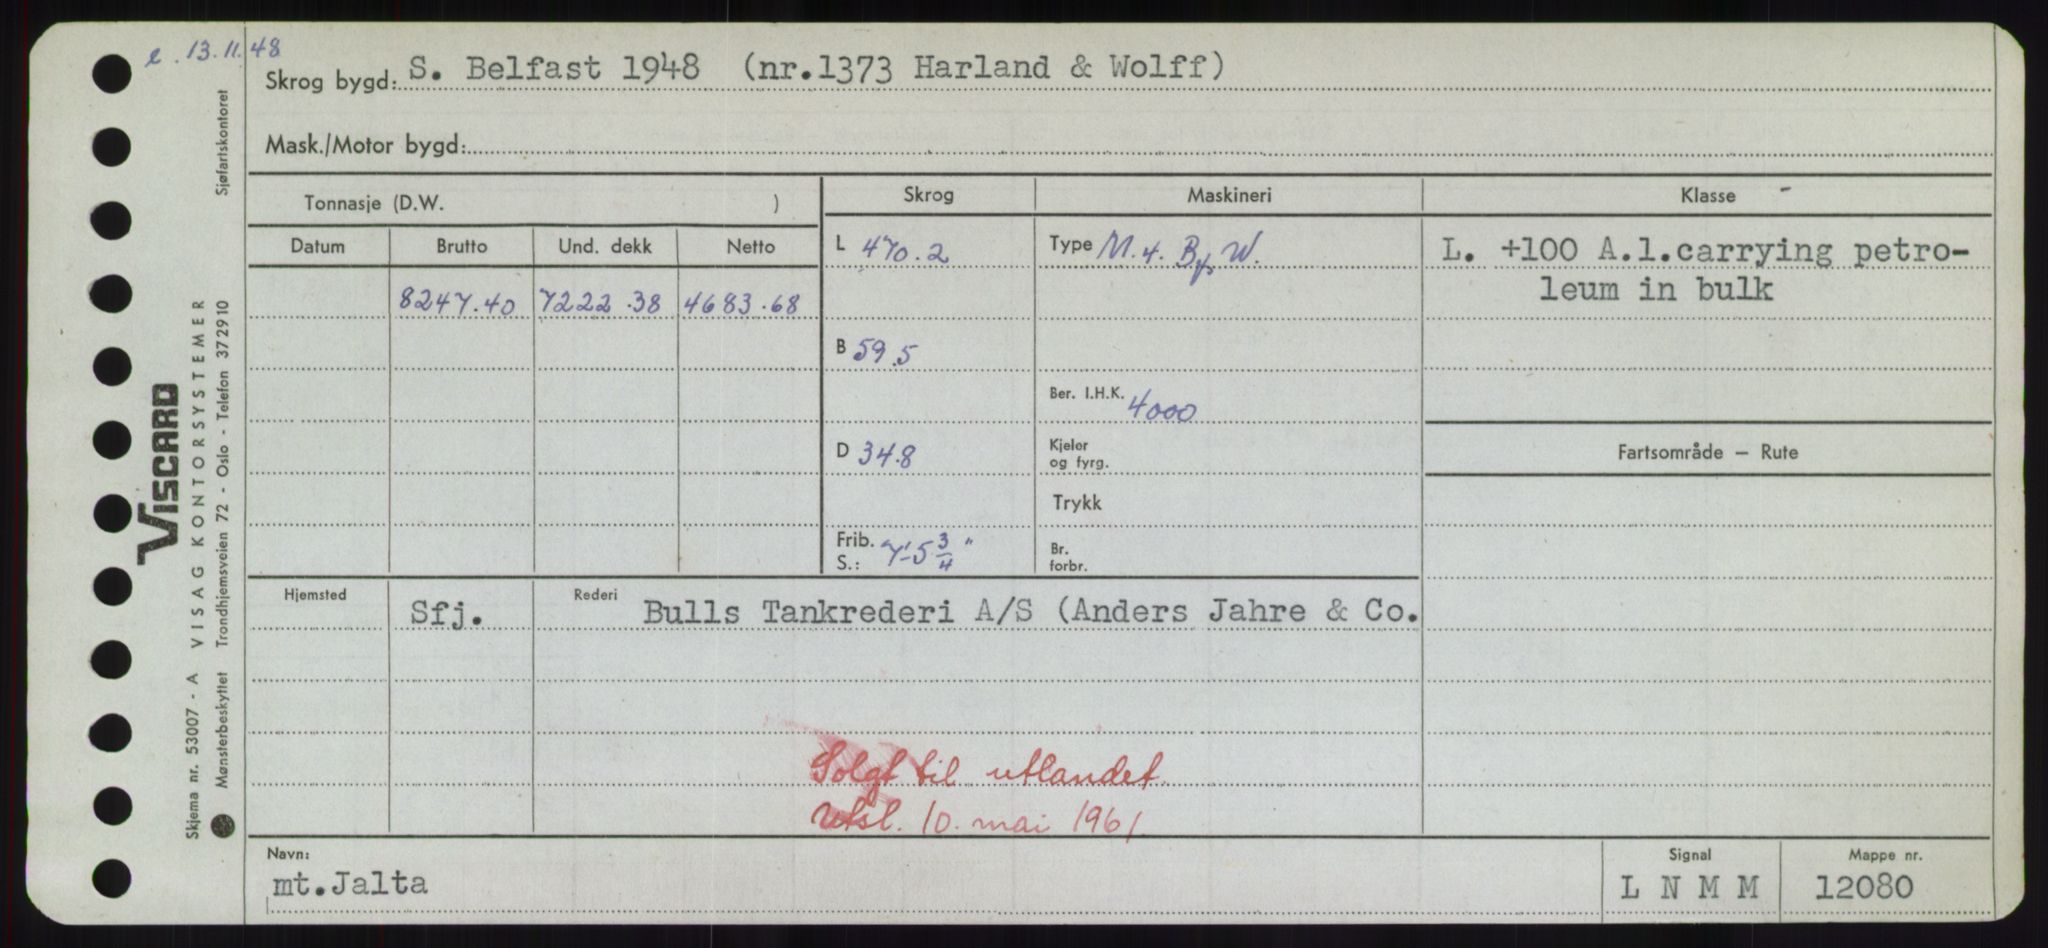 e. 13.11.48
Skrog bygd: S. Belfast 1948 (nr.1373 Harland & Wolff)
Mask./Motor bygd:
Tonnasje (D.W. )
Datum Brutto Und. dekk Netto
8247.40 7222.38 4683.68
Skrog
L 470.2
B 59.5
D 34.8
Frib. S.: 7'-5 3/4"
Maskineri
Type M. 4. B&W.
Ber. I.H.K. 4000
Kjeler
og fyrg.
Trykk
Br.
forbr.
Klasse
L. +100 A.1.carrying petro-
leum in bulk
Fartsområde — Rute
Hjemsted Sfj. Rederi Bulls Tankrederi A/S (Anders Jahre & Co.
Solgt til utlandet.
Utsl. 10. mai 1961.
Navn:
mt.Jalta
Signal
L N M M
Mappe nr.
12080
Skjema nr. 53007 - A VISAG KONTORSYSTEMER
VISCARD
Mønsterbeskyttet Trondhjemsveien 72 - Oslo - Telefon 372910 Sjøfartskontoret